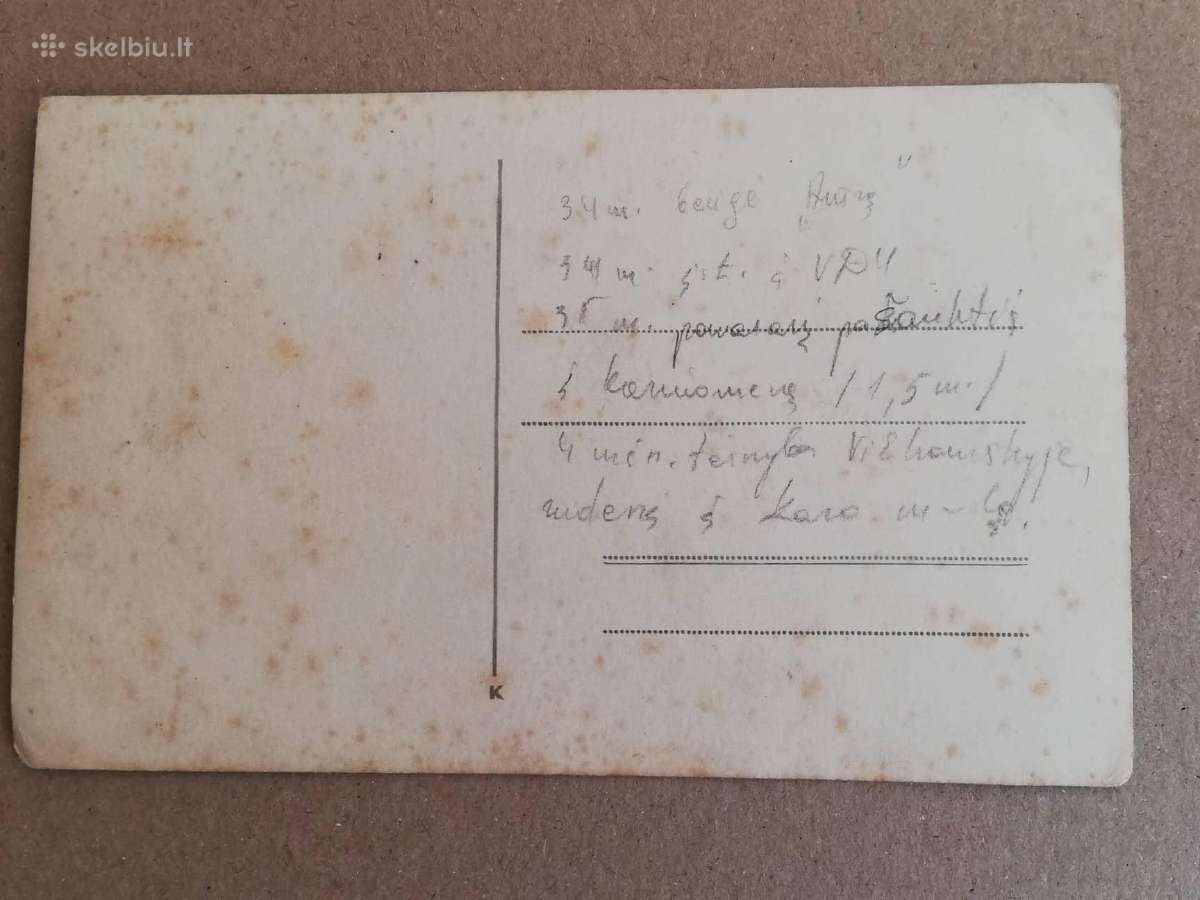 skelbiu.lt
34 m. baigė „Aušrą"
34 m. įst. į VDU
35 m. pavasarį pašauktas
į kariuomenę /1,5 m./
4 mėn. tarnyba Vilkaviškyje,
rudenį į karo m-lą.
K